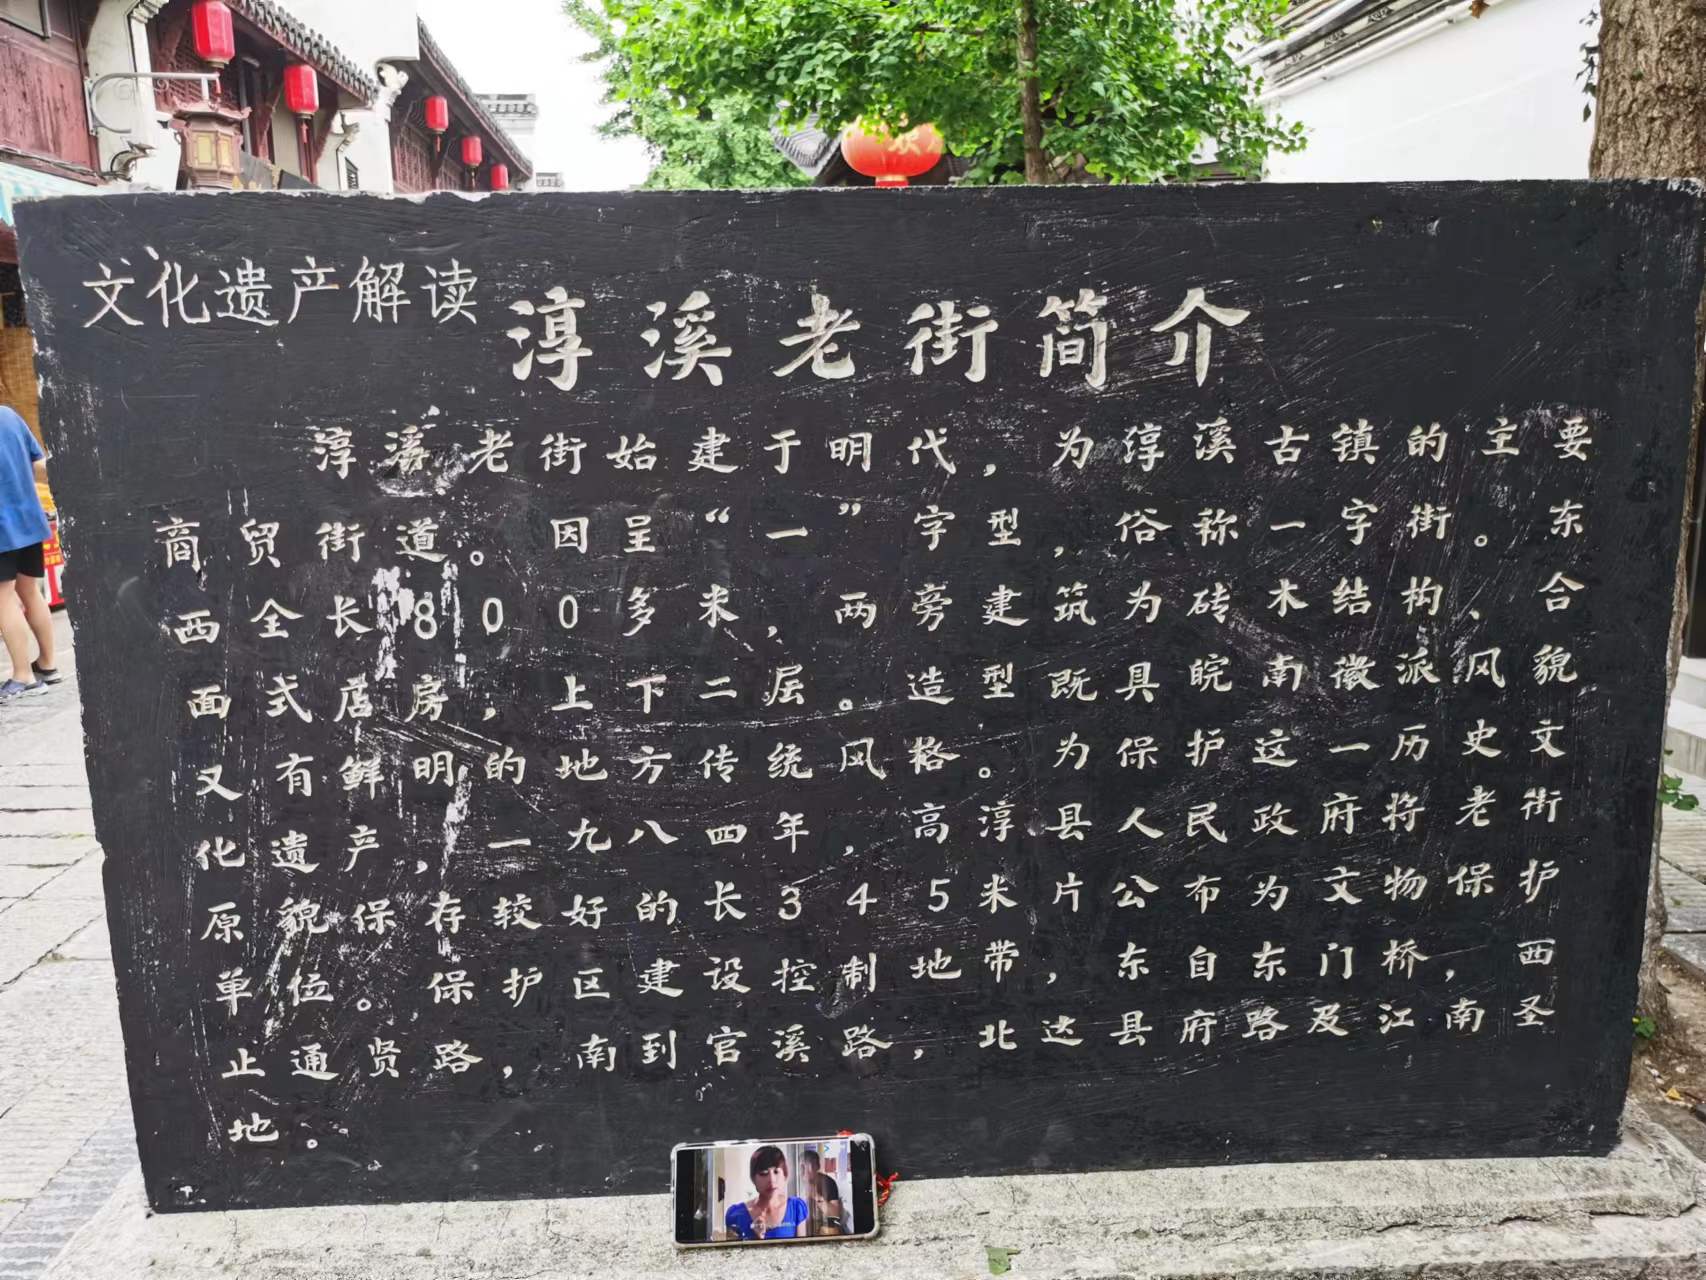 文化遗产解读
淳溪老街简介
淳溪老街始建于明代，为淳溪古镇的主要
商贸街道。因呈“一”字型，俗称一字街。东
西全长800多米，两旁建筑为砖木结构、合
面式店房，上下二层。造型既具皖南徽派风貌
又有鲜明的地方传统风格。为保护这一历史文
化遗产，一九八四年，高淳县人民政府将老街
原貌保存较好的长345米片公布为文物保护
单位。保护区建设控制地带，东自东门桥，西
止通贤路，南到官溪路，北达县府路及江南圣
地。